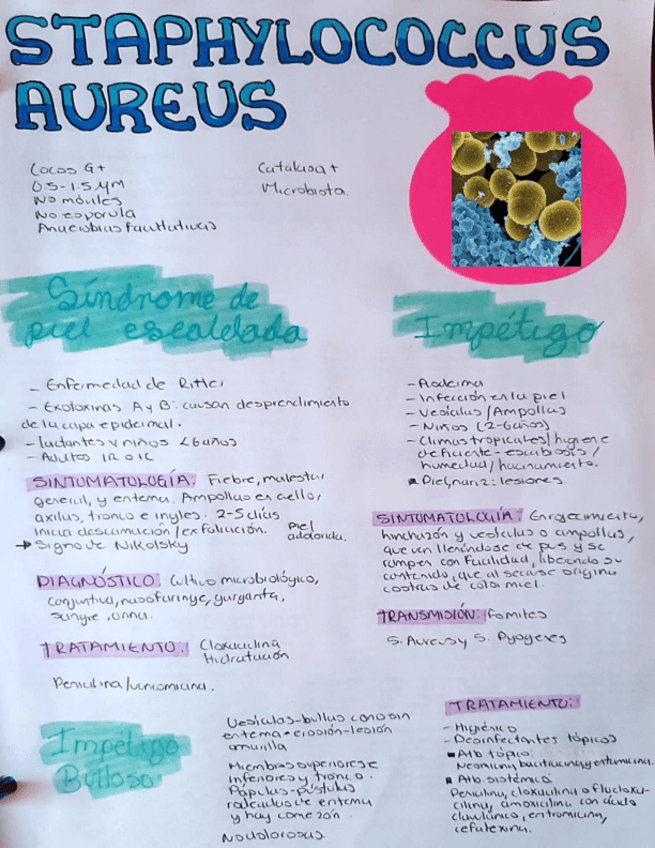 STAPHYLOCOCCUS
AUREUS
Cocos G+
0.5-1.5 µM
No móviles
No esporula
Anaerobias Facultativas
Catalasa +
Microbiota.
Síndrome de
piel escaldada
- Enfermedad de Ritter
- Exotoxinas A y B: causan desprendimiento
de la capa epidermal.
- Lactantes y niños <6 años
- Adultos IR o IC
SINTOMATOLOGÍA: Fiebre, malestar
general, y eritema. Ampollas en cuello,
axilas, tronco e ingles. 2-5 días
inicia descamación/exfoliación.
Piel
adolorida.
→ Signo de Nikolsky
DIAGNÓSTICO: Cultivo microbiológico,
conjuntiva, nasofaringe, garganta,
sangre, orina.
TRATAMIENTO: Cloxacilina
Hidratación
Penicilina/vancomicina.
Impétigo
- Pioderma
- Infección en la piel
- Vesículas/Ampollas
- Niños (2-6 años)
- Climas tropicales/higiene
deficiente - escabiosis/
humedad/hacinamiento.
Piel, nariz: lesiones.
SINTOMATOLOGÍA: Enrojecimiento,
hinchazón y vesículas o ampollas,
que van llenándose de pus y se
rompen con facilidad, liberando su
contenido, que al secarse origina
costras de color miel.
TRANSMISIÓN: Fomites
S. Aureus y S. Pyogenes
TRATAMIENTO:
- Higiénico
- Desinfectantes tópicos
Atb tópico:
Neomicina, bacitracina y eritromicina.
Atb sistémico:
Penicilina, cloxacilina o flucloxa-
cilina, amoxicilina con ácido
clavulánico, eritromicina,
cefalexina.
Impétigo
Bulloso
Vesículas-bullas con o sin
eritema → erosión-lesión
amarilla
Miembros superiores e
inferiores y tronco.
Pápulas-pústulas
rodeadas de eritema
y hay comezón.
No dolorosas